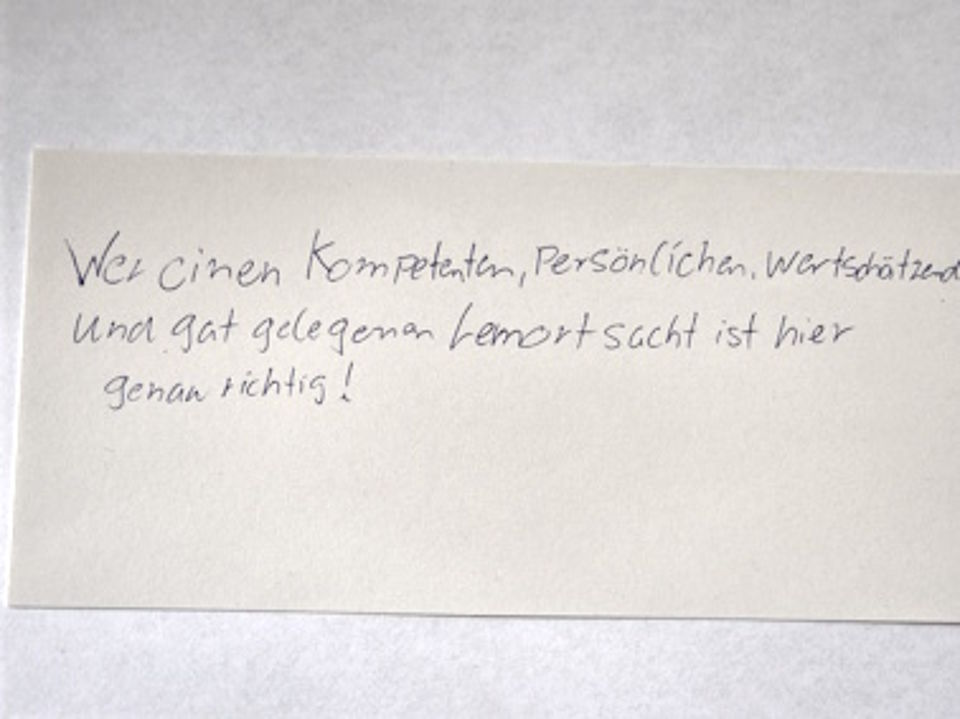 Wer einen Kompetenten, Persönlichen, Wertschätzend
und gut gelegenen Lernort sucht ist hier
genau richtig!